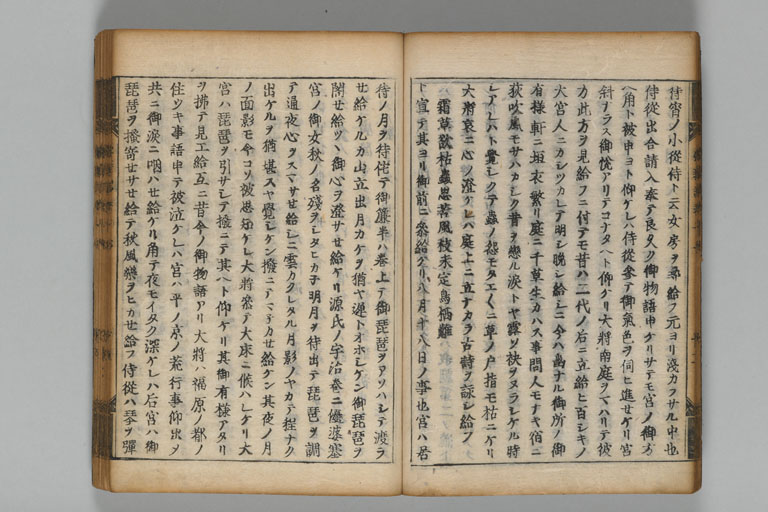 待宵ノ小侍從ト云女房ヲ尋給フ元ヨリ淺カラサル中也
侍從出合請入奉テ良久ク御物語申ケリサテモ宮ノ御方
ヘ角ト被申ヨト仰ケレハ侍從參テ御氣色ヲ伺ヒ進セケリ宮
斜ナラス御悅アリテコナタヘト仰ケリ大將南庭ヲマハリテ彼
カ此方ヲ見給フニ付テモ昔ハ二代ノ后ニ立給ヒ百シキノ
大宮人ニカシツカレテ明シ晩シ給シニ今ハ幽ナル御所ノ御
有樣軒ニ垣衣繁リ庭ニ千草生カハス事問人モナキ宿ニ
荻吹風モサハカシク昔ヲ戀ル淚トヤ露ソ袂ヲヌラシケル時
シアレハト覺シクテ蟲ノ怨モタエ〱ニ草ノ戶指モ枯ニケリ
大將哀ニ心ノ澄ケレハ庭上ニ立ナカラ古詩ヲ詠シ給フ
霜草欲枯蟲思苦風枝未定鳥栖難
ト宣テ其ヨリ御前ニ參給ケリ八月十八日ノ事也宮ハ居
待ノ月ヲ待侘テ御簾半ハ卷上テ御琵琶ヲアソハシテ渡ラ
セ給ケルカ山立出月カケヲ猶ヤ遲トオホシケン御琵琶ヲ
閣セ給ツヽ御心ヲ澄サセ給ケリ源氏ノ宇治卷ニ優婆塞
宮ノ御女秋ノ名殘ヲシタヒカネ明月ヲ待出テ琵琶ヲ調
テ通夜心ヲスマサセ給シニ雲カクレタル月影ノヤカテ程ナク
出ケルヲ猶堪スヤ覺シケン撥ニテマネカセ給ケン其夜ノ月
ノ面影モ今コソ被思知ケレ大將參テ大床ニ候ハレケリ大
宮ハ琵琶ヲ引サシテ撥ニテ其ヘト仰ケリ其御有樣アタリ
ヲ拂テ見エ給互ニ昔今ノ御物語アリ大將ハ福原ノ都ノ
住ウキ事語申テ被泣ケレハ宮ハ平ノ京ノ荒行事仰出ツヽ
共ニ御淚ニ咽ハセ給ケリ角テ夜モイタク深ケレハ后宮ハ御
琵琶ヲ搔寄セサセ給テ秋風樂ヲヒカセ給フ侍從ハ琴ヲ彈